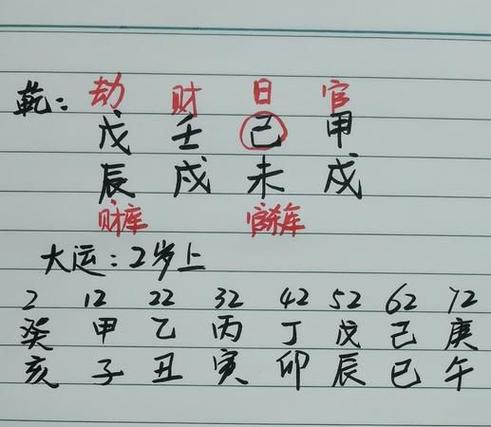 乾: 劫 财 日 官
戊 壬 己 甲
辰 戌 未 戌
财库 官杀库
大运: 2岁上
2 12 22 32 42 52 62 72
癸 甲 乙 丙 丁 戊 己 庚
亥 子 丑 寅 卯 辰 巳 午